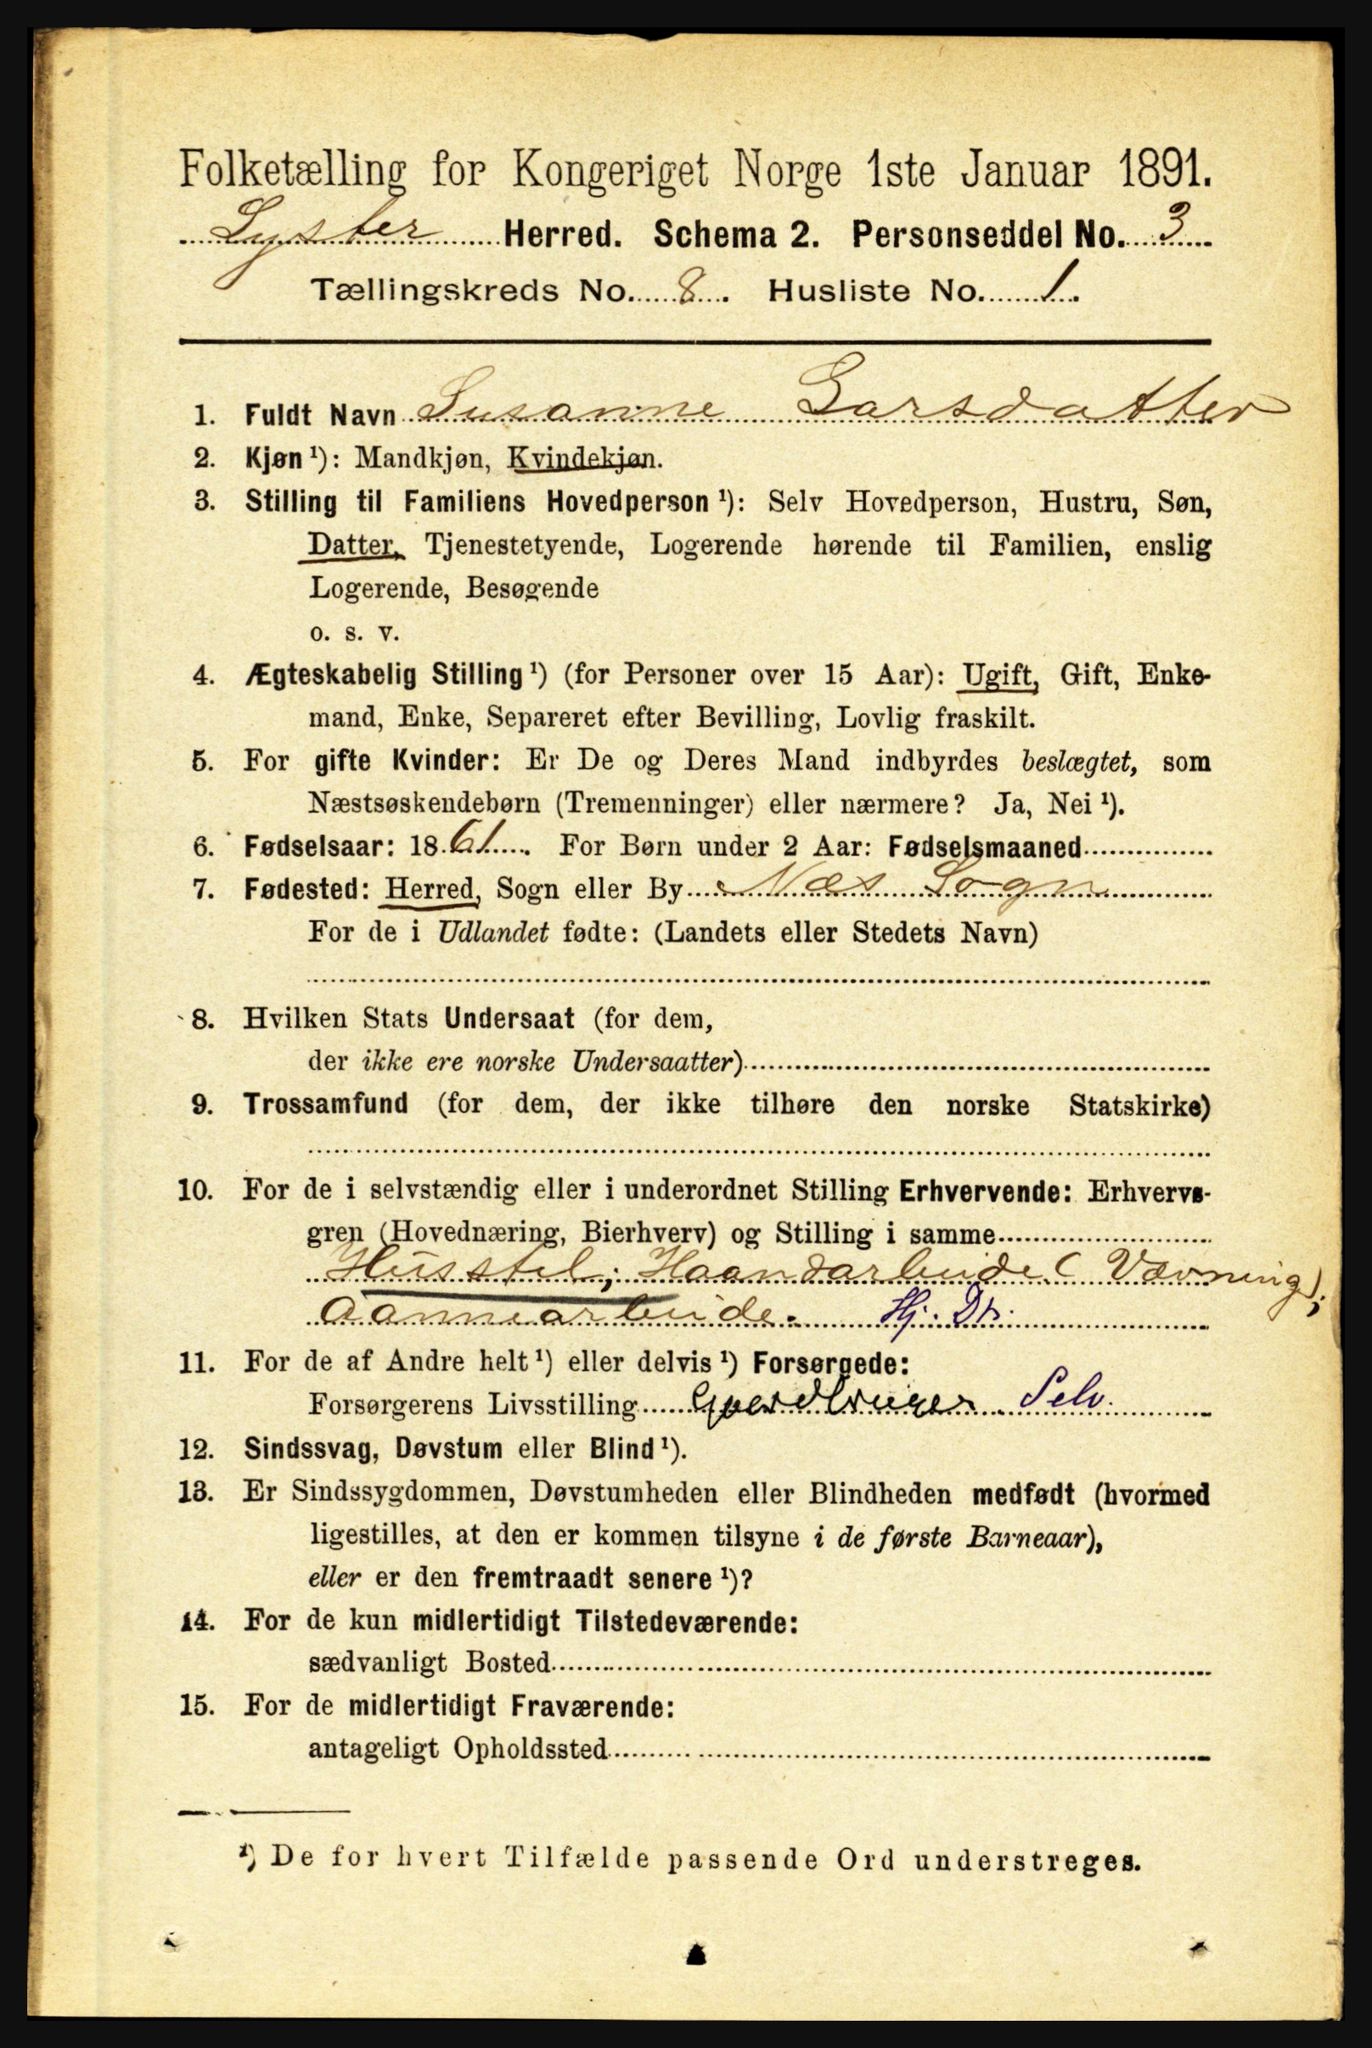 Folketælling for Kongeriget Norge 1ste Januar 1891.
Lyster Herred. Schema 2. Personseddel No. 3
Tællingskreds No. 8. Husliste No. 1.
1. Fuldt Navn Susanne Larsdatter
2. Kjøn ¹): Mandkjøn, Kvindekjøn.
3. Stilling til Familiens Hovedperson ¹): Selv Hovedperson, Hustru, Søn,
Datter, Tjenestetyende, Logerende hørende til Familien, enslig
Logerende, Besøgende
o. s. v.
4. Ægteskabelig Stilling ¹) (for Personer over 15 Aar): Ugift, Gift, Enke-
mand, Enke, Separeret efter Bevilling, Lovlig fraskilt.
5. For gifte Kvinder: Er De og Deres Mand indbyrdes beslægtet, som
Næstsøskendebørn (Tremenninger) eller nærmere? Ja, Nei ¹).
6. Fødselsaar: 1861. For Børn under 2 Aar: Fødselsmaaned
7. Fødested: Herred, Sogn eller By Næs Sogn
For de i Udlandet fødte: (Landets eller Stedets Navn)
8. Hvilken Stats Undersaat (for dem,
der ikke ere norske Undersaatter)
9. Trossamfund (for dem, der ikke tilhøre den norske Statskirke)
10. For de i selvstændig eller i underordnet Stilling Erhvervende: Erhvervs-
gren (Hovednæring, Bierhverv) og Stilling i samme
Husstel; Haandarbeide (Vævning);
Aannearbeide. Hj. Dt.
11. For de af Andre helt ¹) eller delvis ¹) Forsørgede:
Forsørgerens Livsstilling Gaardbruger Selv.
12. Sindssvag, Døvstum eller Blind ¹).
13. Er Sindssygdommen, Døvstumheden eller Blindheden medfødt (hvormed
ligestilles, at den er kommen tilsyne i de første Barneaar),
eller er den fremtraadt senere ¹)?
14. For de kun midlertidigt Tilstedeværende:
sædvanligt Bosted
15. For de midlertidigt Fraværende:
antageligt Opholdssted
¹) De for hvert Tilfælde passende Ord understreges.